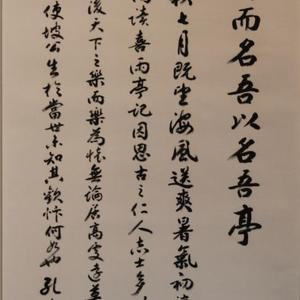 而名吾以名吾亭
秋七月既望海風送爽暑氣初
讀喜雨亭記因思古之仁人志士多
後天下之樂而樂為懷無論居高處遠
使坡公生於當世未知其歡忭何如也孔